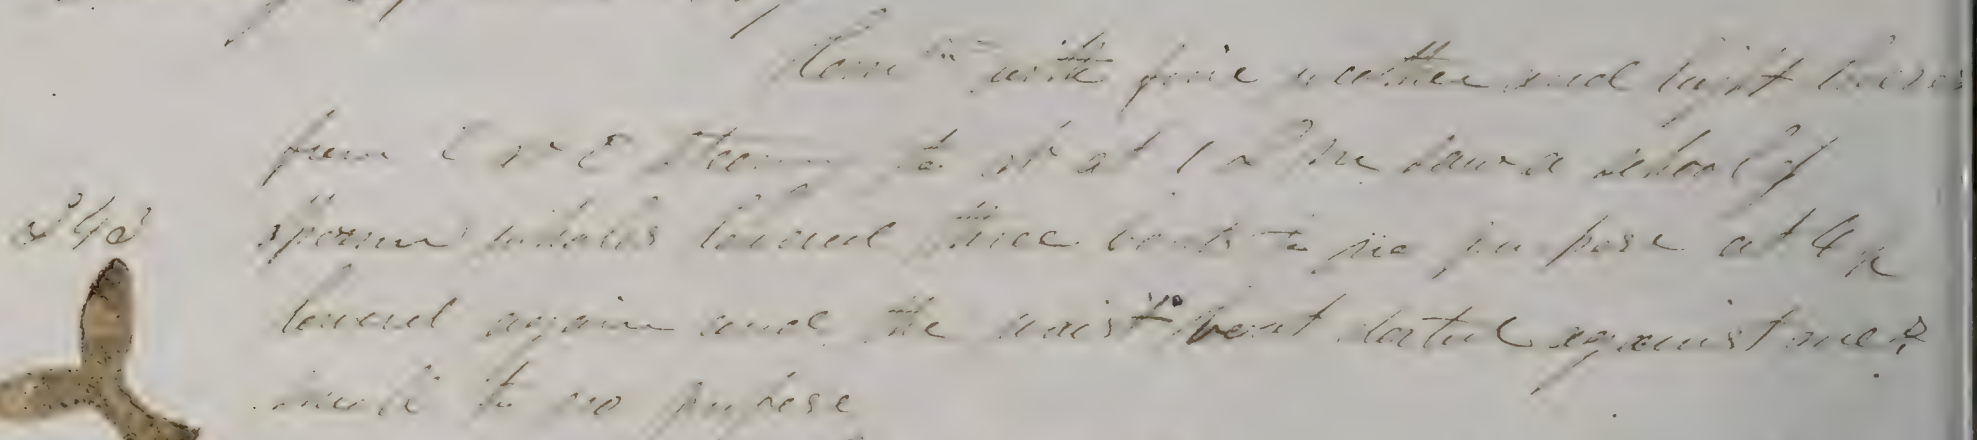 Com with fine weather and light breeses
from E N E Steering to at 1 P M saw a school of
Sperm whales lowered three boats to no purpose at 4 P
lowered again and the waist boat darted against one &
to no purpose